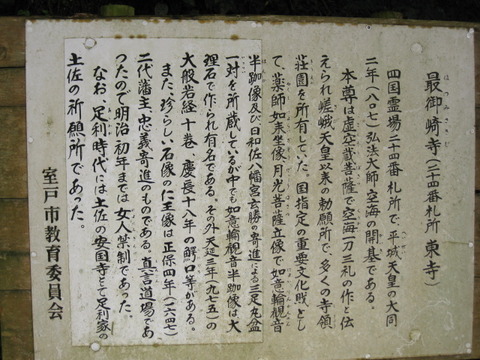 最御崎寺(二十四番札所 東寺)
四国霊場二十四番札所で、平城天皇の大同
二年(八〇七)弘法大師空海の開基である。
本尊は虚空蔵菩薩で空海一刀三礼の作と伝
えられ嵯峨天皇以来の勅願所で、多くの寺領
荘園を所有していた。国指定の重要文化財とし
て、薬師如来坐像、月光菩薩立像で如意輪観音
半跏像及び日和佐八幡宮玄勝の寄進による三足丸盆
一対を所蔵しているが中でも如意輪観音半跏像は大
理石で作られ有名である。その外天延三年(九七五)の
大般若経十巻、慶長十八年の鰐口等がある。
また、珍らしい石像の仁王像は正保四年(一六四七)
二代藩主、忠義寄進のものである。真言道場であ
ったので明治初年までは女人禁制であった。
なお、足利時代には土佐の安国寺として足利家の
土佐の祈願所であった。
室戸市教育委員会